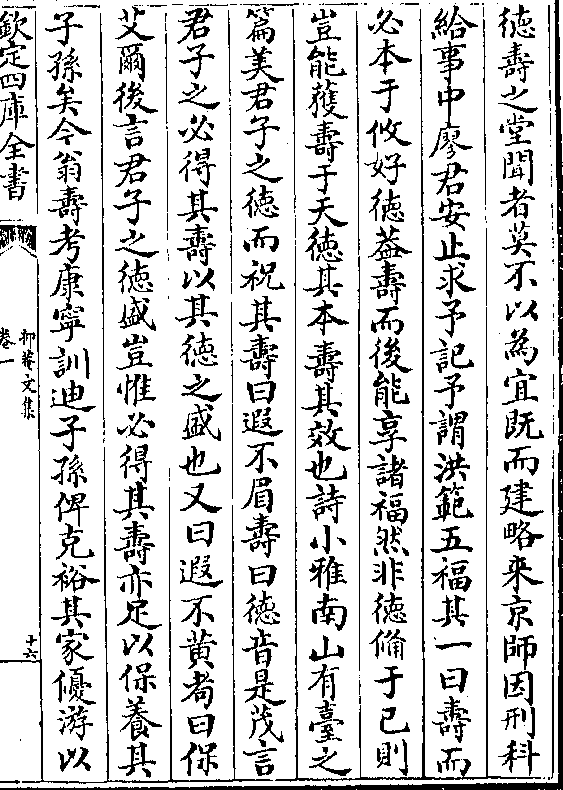 徳壽之堂聞者莫不以為宜既而建略来京師因刑科
給事中廖君安止求予記予謂洪範五福其一曰壽而
必本于攸好徳葢壽而後能享諸福然非徳脩于已則
豈能獲壽于天徳其本壽其效也詩小雅南山有臺之
篇美君子之徳而祝其壽曰遐不眉壽曰徳音是茂言
君子之必得其壽以其徳之盛也又曰遐不黄耇曰保
艾爾後言君子之徳盛豈惟必得其壽亦足以保養其
子孫矣今翁壽考康寧訓迪子孫俾克裕其家優游以
欽定四庫全書
抑菴文集
卷一
十六